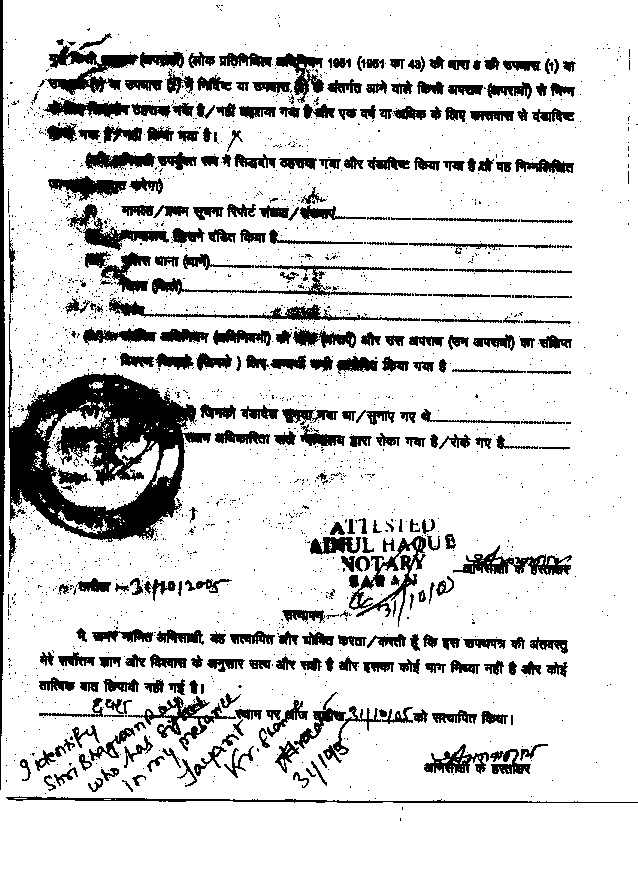 मुझे किसी (अपराधों) (लोक प्रतिनिधित्व अधिनियम 1951 (1951 का 43) की धारा 8 की उपधारा (1) या
उपधारा (2) या उपधारा (3) में निर्दिष्ट या उपधारा के अंतर्गत आने वाले किसी अपराध (अपराधों) से भिन्न
के लिए सिद्धदोष ठहराया गया है/नहीं ठहराया गया है और एक वर्ष या अधिक के लिए कारावास से दंडादिष्ट
किया गया है/नहीं किया गया है।
उपर्युक्त रूप में सिद्धदोष ठहराया गया और दंडादिष्ट किया गया है तो वह निम्नलिखित
जानकारी प्रस्तुत करेगा)
(i) मामला/प्रथम सूचना रिपोर्ट संख्या/संख्याएं
न्यायालय, जिसने दंडित किया है
पुलिस थाना (थानें)
जिला (जिलों)
अधिनियम (अधिनियमों) की धारा (धाराएं) और उस अपराध (उन अपराधों) का संक्षिप्त
विवरण जिसके (जिनके ) लिए अभ्यर्थी को किया गया है
जिनको दंडादेश सुनाया गया था/सुनाए गए थे
सक्षम अधिकारिता वाले न्यायालय द्वारा रोका गया है/रोके गए है
ATTESTED
AINUL HAQUE
NOTARY
SARAN
31/10/05
अभिसाक्षी के हस्ताक्षर
तारीख :- 31/10/2005
सत्यापन
मै, ऊपर नामित अभिसाक्षी, यह सत्यापित और घोषित करता/करती हूँ कि इस शपथपत्र की अंतर्वस्तु
मेरे सर्वोत्तम ज्ञान और विश्वास के अनुसार सत्य और सही है और इसका कोई भाग मिथ्या नहीं है और कोई
तात्विक बात छिपायी नहीं गई है।
छपरा स्थान पर आज तारीख 31/10/05 को सत्यापित किया।
I identify
Shri Bhagwan Rai
who has signed
in my presence
Jayant
Kr.
31/10/05
अभिसाक्षी के हस्ताक्षर